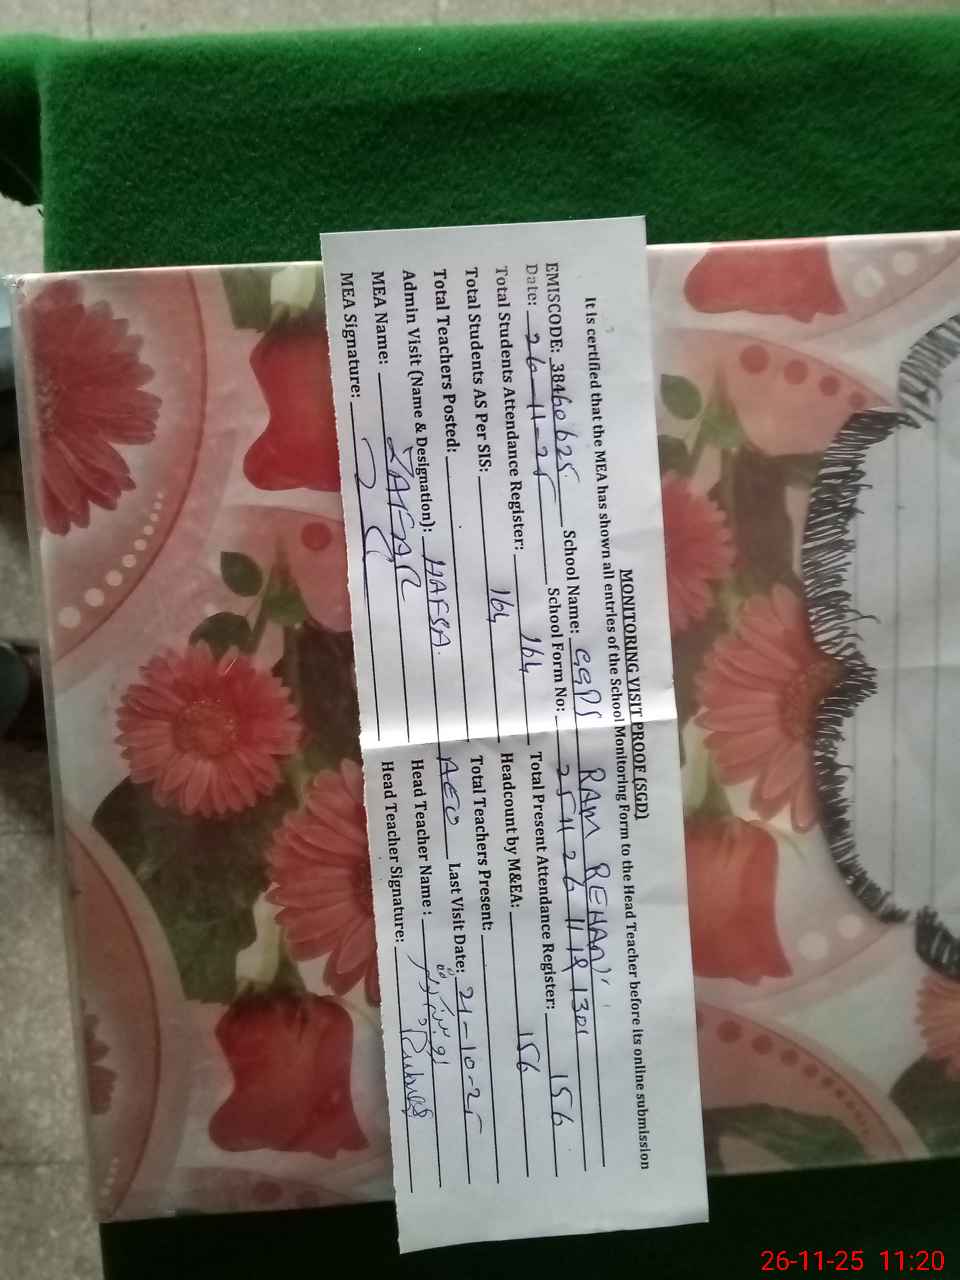 MONITORING VISIT PROOF (SGD)
It is certified that the MEA has shown all entries of the School Monitoring Form to the Head Teacher before its online submission
EMISCODE: 38460625 School Name: GGPS RAM REHAN
Date: 26-11-25 School Form No:
Total Students Attendance Register: 164 Total Present Attendance Register: 156
Total Students AS Per SIS: 164 Headcount by M&EA: 156
Total Teachers Posted: Total Teachers Present:
Admin Visit (Name & Designation): HAFSA. AEO Last Visit Date: 21-10-25
MEA Name: ZAFAR Head Teacher Name :
MEA Signature: Head Teacher Signature:
26-11-25 11:20